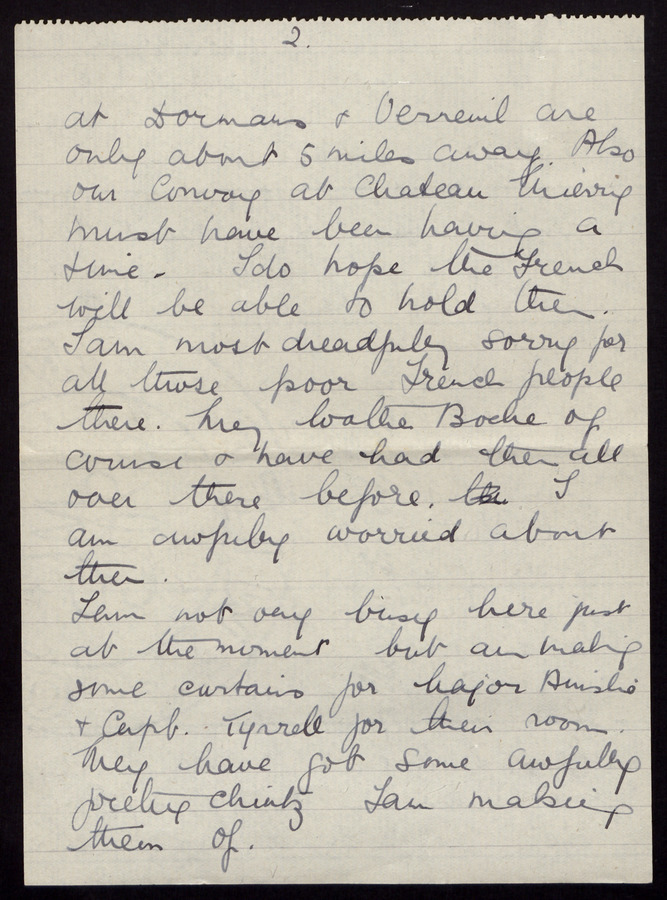 2.
at Dormans & Verneuil are
only about 5 miles away. Also
our Convoy at Chateau Thierry
must have been having a
time. I do hope the French
will be able to hold them.
I am most dreadfully sorry for
all those poor French people
there. They loathe Boche of
course & have had them all
over there before. I
am awfully worried about
them.
I am not very busy here just
at the moment but am making
some curtains for Major Ainslie
& Capt. Tyrrell for their room.
They have got some awfully
pretty chintz I am making
them of.